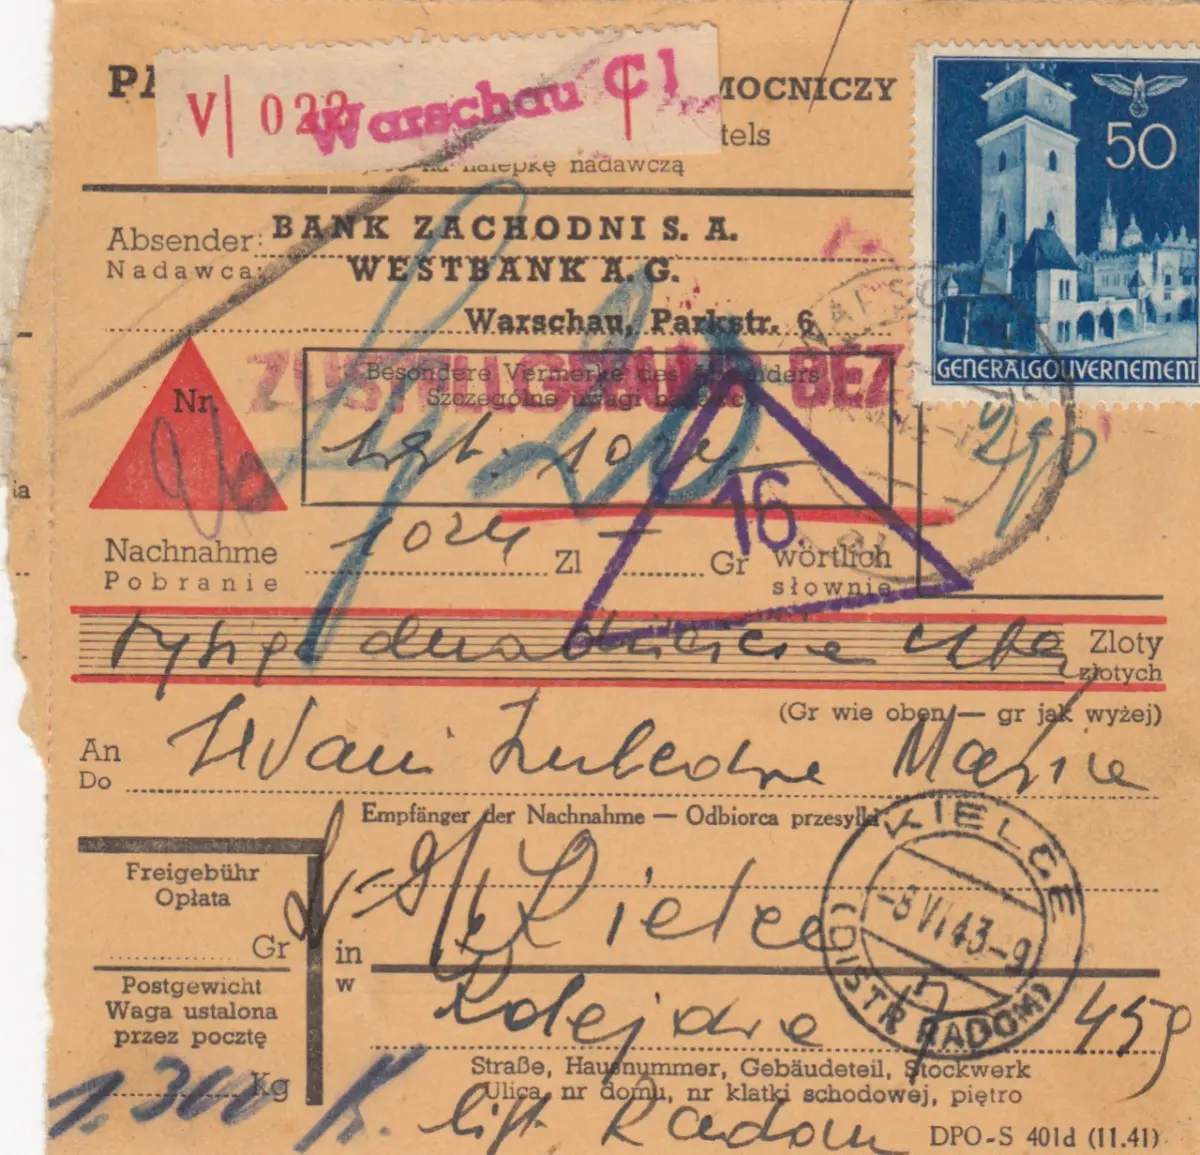 MOCNICZY
V 022 Warschau C1
tels
na nalepkę nadawczą
50
GENERALGOUVERNEMENT
Absender: BANK ZACHODNI S. A.
Nadawca: WESTBANK A. G.
Warschau, Parkstr. 6
ZUSTELLGEBÜHR BEZ
Nr.
Besondere Vermerke des Absenders
Szczególne uwagi nadawcy
1024
290
16.
Nachnahme 1024 Zl — Gr wörtlich
Pobranie słownie
dwadzieścia Zloty
złotych
(Gr wie oben — gr jak wyżej)
An
Do
Empfänger der Nachnahme — Odbiorca przesyłki
KIELCE
-8 VI 43-9
(DISTR RADOM)
Freigebühr
Opłata
Gr
in Kielce
w
Postgewicht
Waga ustalona
przez pocztę
1.300 Kg
Kolejowa 45
Straße, Hausnummer, Gebäudeteil, Stockwerk
Ulica, nr domu, nr klatki schodowej, piętro
Radom
DPO-S 401d (11.41)